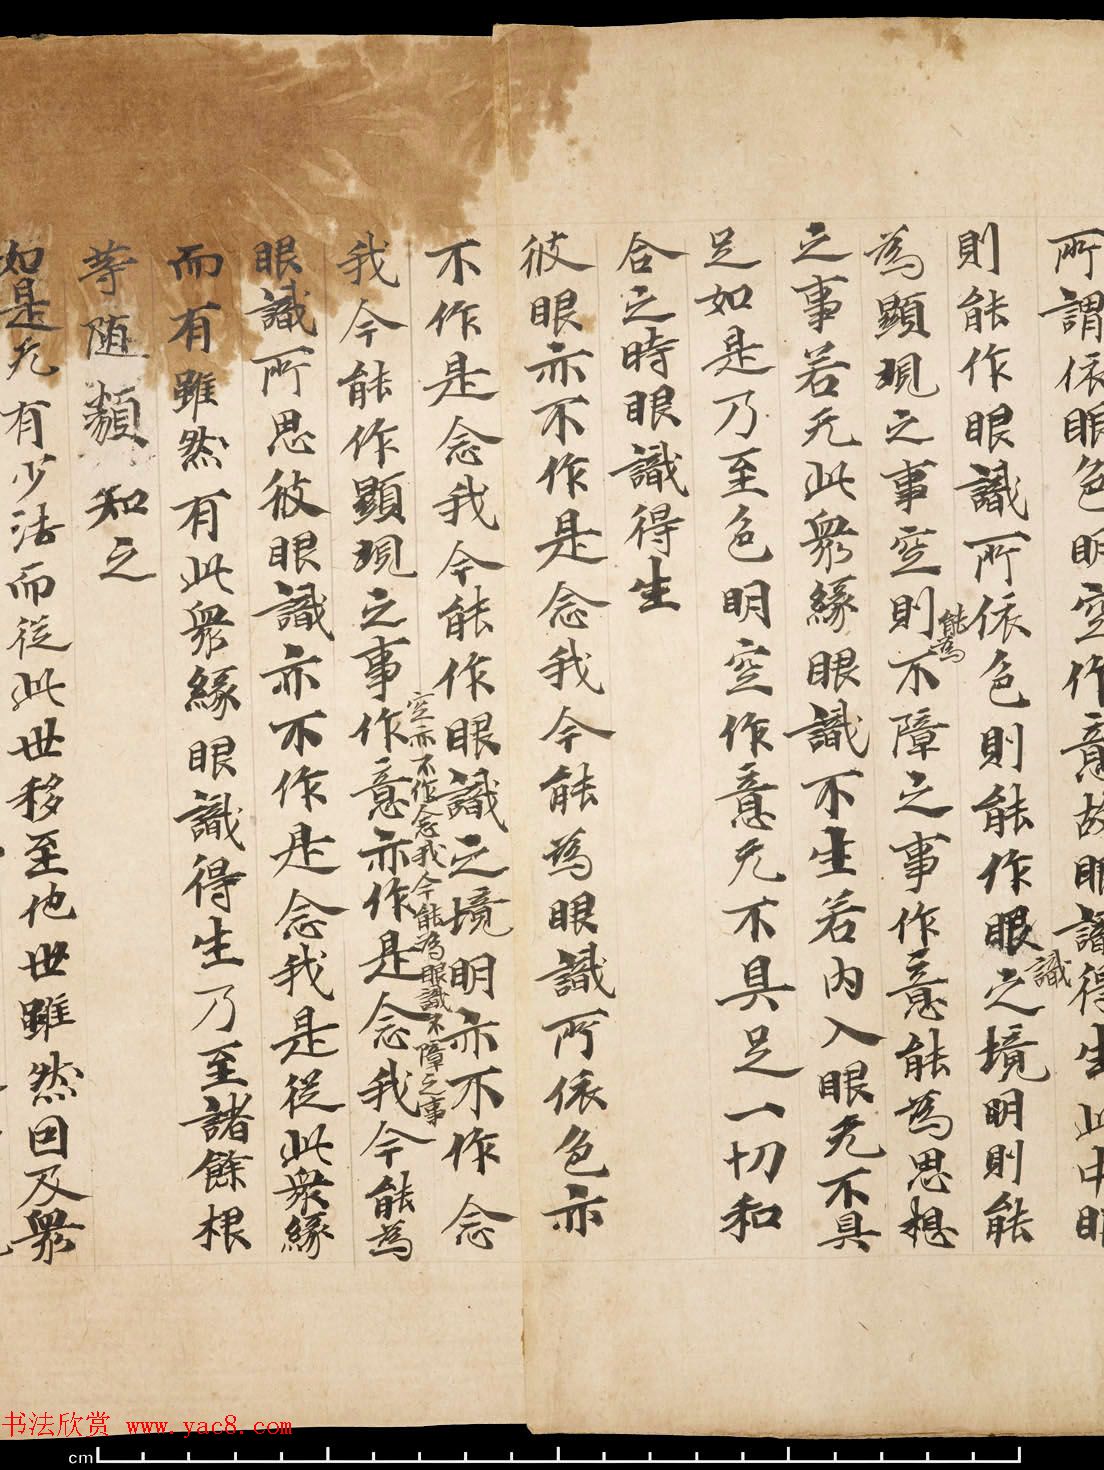 所謂依眼色明空作意故眼識得生此中眼
則能作眼識所依色則能作眼識之境明則能
為顯現之事空則能為不障之事作意能為思想
之事若无此衆緣眼識不生若內入眼无不具
足如是乃至色明空作意无不具足一切和
合之時眼識得生
彼眼亦不作是念我今能為眼識所依色亦
不作是念我今能作眼識之境明亦不作念
我今能作顯現之事空亦不作念我今能為眼識不障之事作意亦作是念我今能為
眼識所思彼眼識亦不作是念我是從此衆緣
而有雖然有此衆緣眼識得生乃至諸餘根
等随類知之
如是无有少法而從此世移至他世雖然因及衆
书法欣赏 www.yac8.com
cm